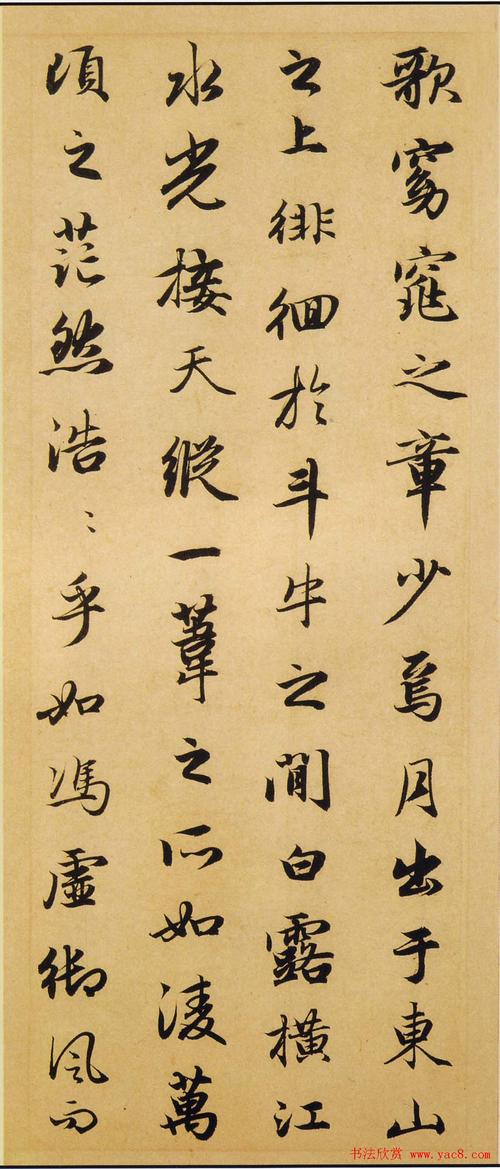 歌窈窕之章少焉月出于東山
之上徘徊於斗牛之間白露橫江
水光接天縱一葦之所如凌萬
頃之茫然浩〻乎如馮虛御風而
书法欣赏 www.yac8.com